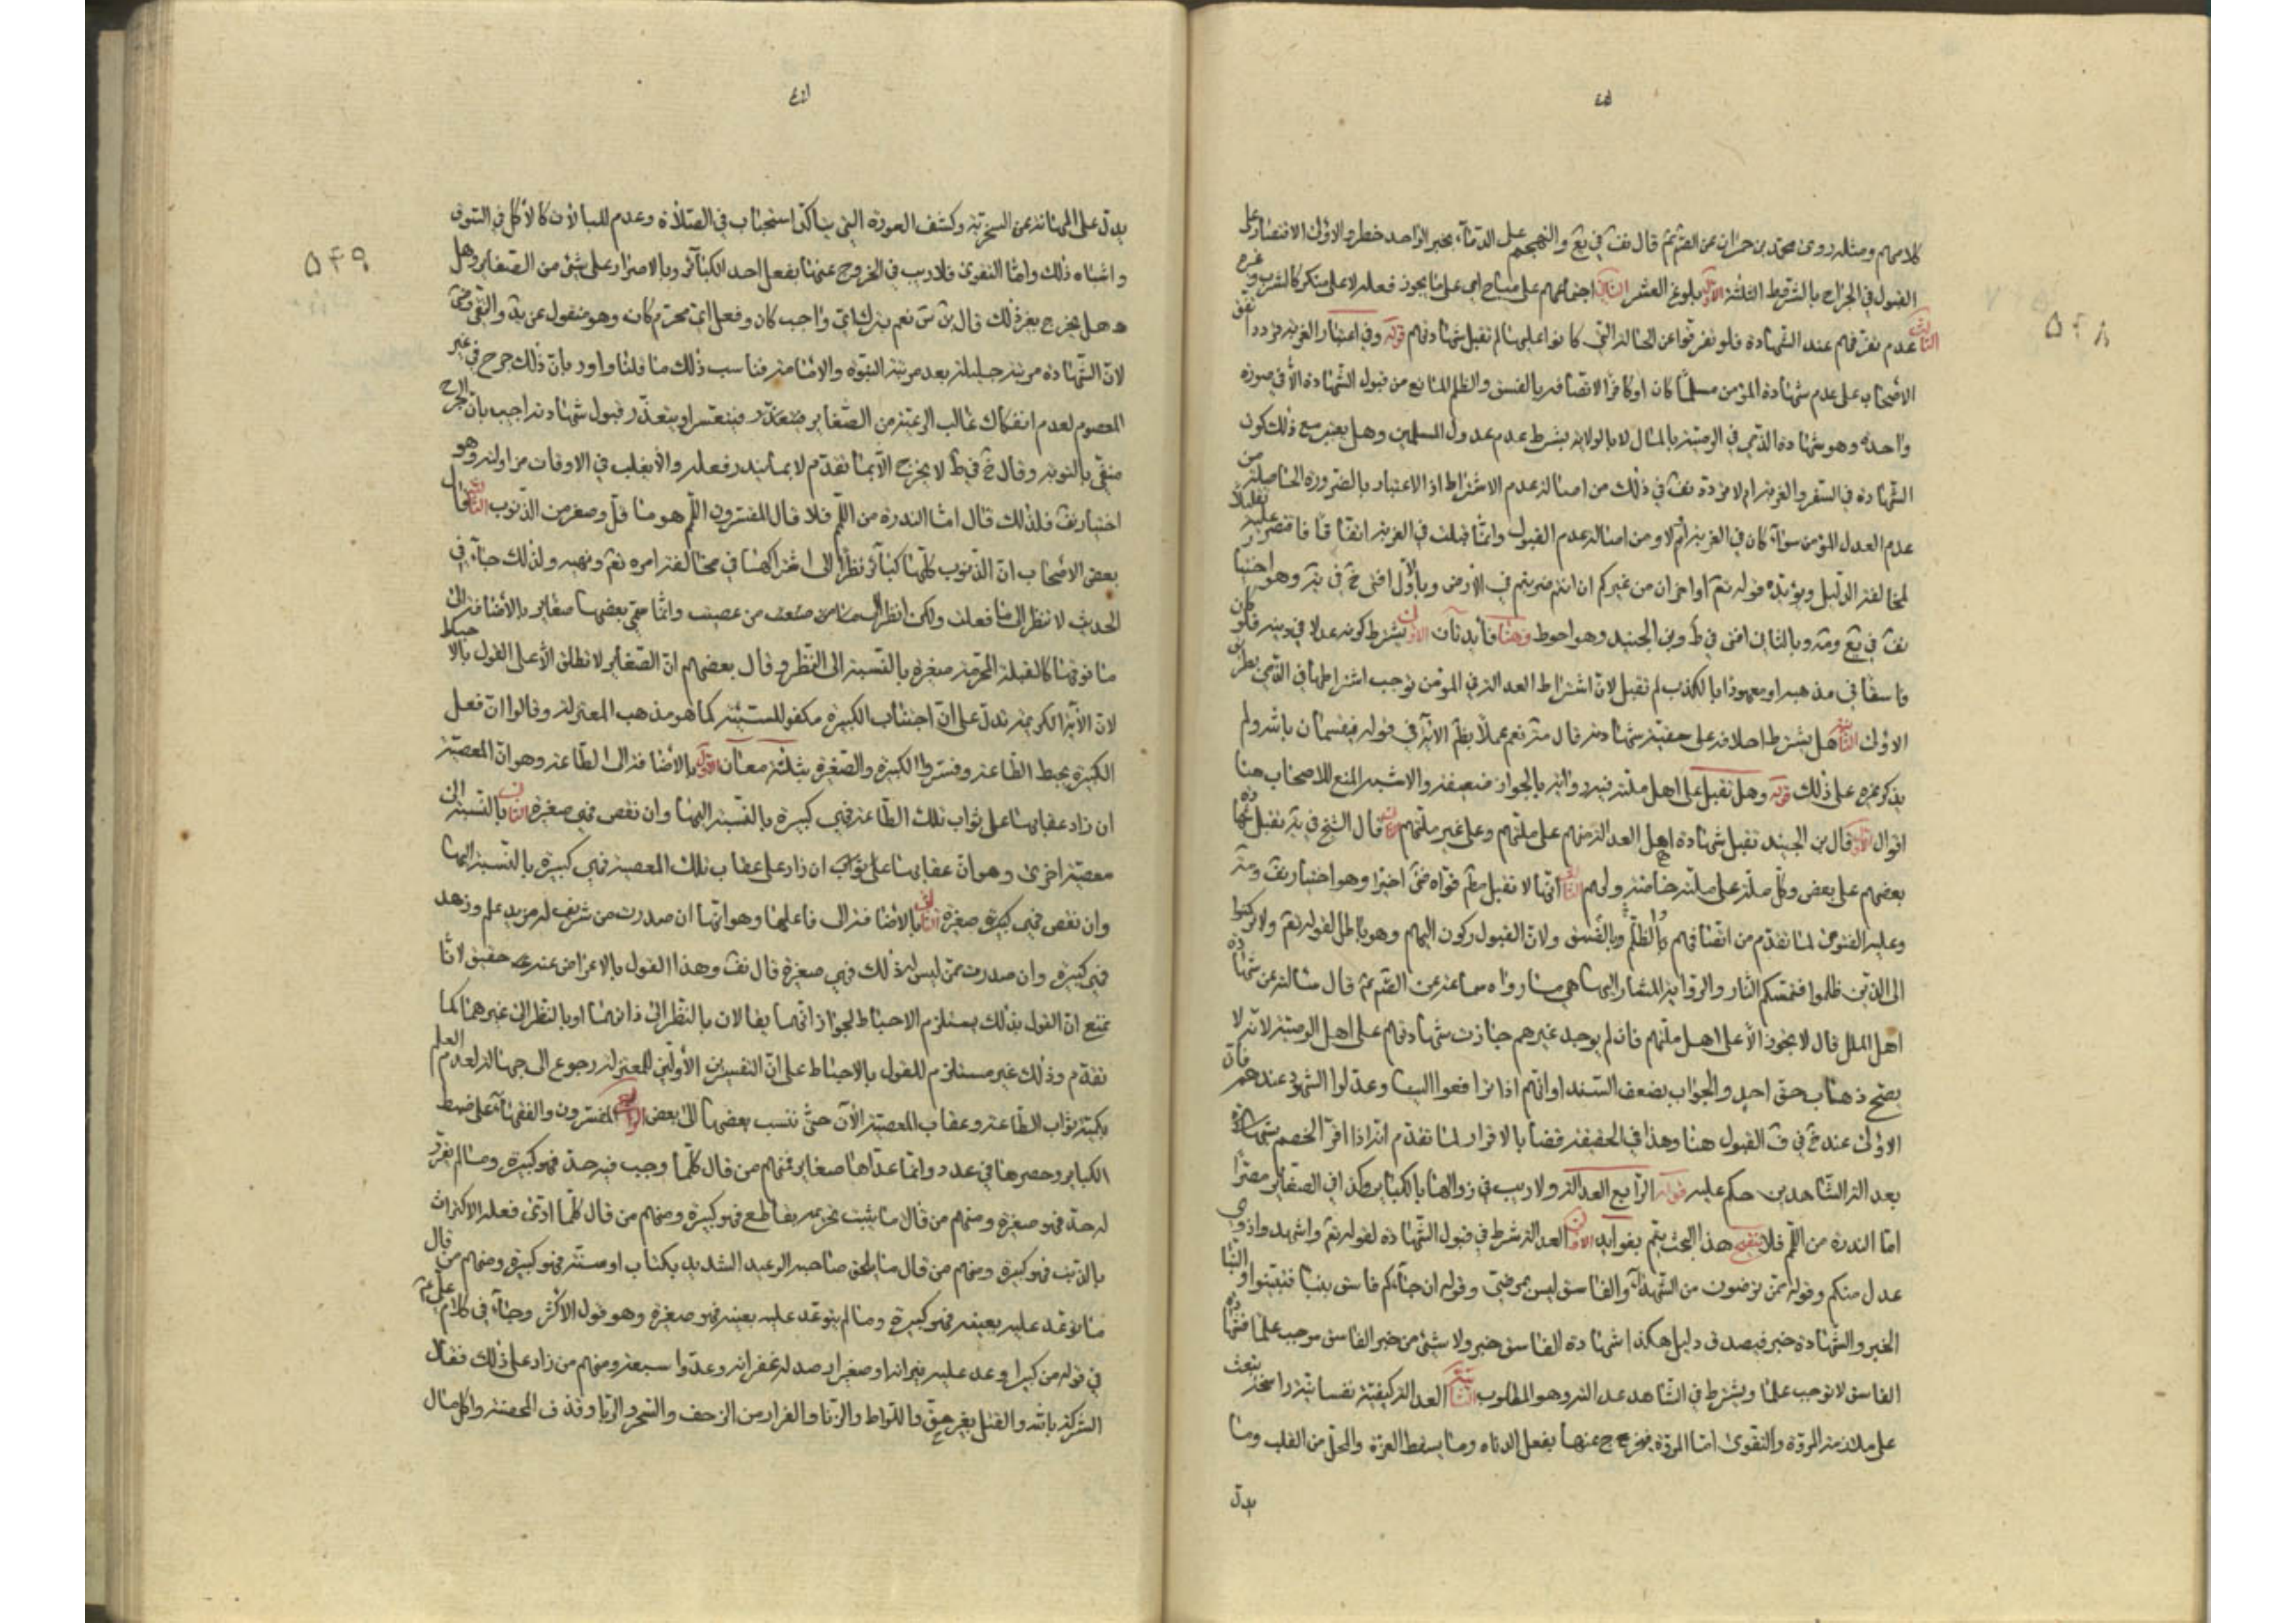 كلامهم ومثله روى محمد بن حمران عن الصّم قال نفث في يع والتهجم على الدماء بخبر الواحد خطر والاولى الاقتصار على
القبول في الجراح بالشروط الثلثة الاول بلوغ العشر الثانى اجتماعهم على مباح اى على ما يجوز فعله لا على منكر كالشرب وغيره
الثالث عدم تفرقهم عند الشهادة فلو تفرقوا عن الحالة التى كانوا عليها لم تقبل شهادتهم قوله وفى اعتبار الغربة تردد اتفق
الاصحاب على عدم شهادة المؤمن مسلما كان او كافرا لاتصافه بالفسق والظلم المانع من قبول الشهادة الا في صورة
واحدة وهو شهادة الذمى في الوصية بالمال لا بالولاية بشرط عدم عدول المسلمين وهل يعتبر مع ذلك كون
الشهادة في السفر والغربة ام لا تردد نفث في ذلك من اصالة عدم الاشتراط اذ الاعتبار بالضرورة الحاصلة من
عدم العدل المؤمن سواء كان في الغربة ام لا ومن اصالة عدم القبول وانما قبلت في الغربة اتفاقا فاقتصر عليه تقليلا
لمخالفة الدليل ويؤيده قوله تع او اخران من غيركم ان انتم ضربتم في الارض وبالاول افتى خ في ية وهو اختيا
نفث في يع ومة وبالثانى افتى في ط وبن الجنيد وهو احوط وهنا فايدتان الاولى يشترط كونه عدلا في دينه فلو كان
فاسقا في مذهبه او يعهود بالكذب لم تقبل لان اشتراط العدالة في المؤمن توجب اشتراطها في الذمى بطريق
الاولى الثانية هل يشترط احلافه على حقية شهادته قال مة نعم عملا بظم الاية في قوله فيقسمان بالله ولم
يذكر غيره على ذلك قوله وهل تقبل على اهل ملته فيه رواية بالجواز ضعيفة والاشبه المنع للاصحاب هنا
اقوال الاول قال بن الجنيد تقبل شهادة اهل العدالة منهم على ملتهم وعلى غير ملتهم قال الشيخ في ية تقبل شهادة
بعضهم على بعض وكل ملة على ملته خاصة ولهم الثالث انها لا تقبل مطم قواه اخيرا وهو اختيار نفث ومة
وعليه الفتوى لما تقدم من اتصافهم بالظلم وبالفسق ولان القبول ركون اليهم وهو باطل لقوله تع ولا تركنوا
الى الذين ظلموا فتمسكم النار والرواية المشار اليها هى ما رواه سماعة عن الصم قال سالته عن شهادة
اهل الملل قال لا يجوز الا على اهل ملتهم فان لم يوجد غيرهم جازت شهادتهم على اهل الوصية لانه لا
يصح ذهاب حق احد والجواب بضعف السند او انهم اذا ترافعوا الينا وعدلوا الشهود عندهم فان
الاولى عند خ في ف القبول هنا وهذا في الحقيقة قضا بالاقرار لما تقدم انه اذا اقر الخصم بشهادة
بعدالة الشاهدين حكم عليه قوله الرابع العدالة ولا ريب في زوالها بالكباير وكذا في الصغاير مصرا
اما الندرة من اللمم فلا تنقيح هذا البحث يتم بفوايد الاولى العدالة شرط في قبول الشهادة لقوله تع واشهدوا ذوى
عدل منكم وقوله ممن ترضون من الشهداء والفاسق ليس بمرضى وقوله ان جاءكم فاسق بنبا فتبينوا والنبا
الخبر والشهادة خبر فيصدق دليل هكذا شهادة الفاسق خبر ولا شئ من خبر الفاسق موجب علما فشهادة
الفاسق لا توجب علما ويشترط في الشاهد عدالته وهو المطلوب الثانية العدالة كيفية نفسانية راسخة تبعث
على ملازمة المروة والتقوى اما المروة فيخرج عنها بفعل الدناه وما يسقط العزة والمحل من القلب وما
يدل
يدل على المهانة عن السخرية وكشف العورة التى يتاكد استحباب في الصلاة وعدم للمبالات كالاكل في السوق
واشباه ذلك واما التقوى فلا ريب في الخروج عنها بفعل احد الكبائر وبالاصرار على شئ من الصغاير وهل
هل يخرج بغير ذلك قال بن س نعم بترك اى واجب كان وفعل اى محرم كان وهو منقول عن ية والتقى
لان الشهادة مرتبة جليلة بعد مرتبة النبوة والامامة فناسب ذلك ما قلنا واورد بان ذلك حرج في غير
المعصوم لعدم انفكاك غالب الرعية من الصغاير فيتعسر او يتعذر قبول شهادته اجيب بان الحرج
منفى بالتوبة وقال خ في ط لا يخرج الا بما تقدم لا بما يندر فعله والا يغلب في الاوقات من اوله وهو
اختيار نفث فلذلك قال اما الندرة من اللمم فلا قال المفسرون اللمم هو ما قل وصغر من الذنوب الثالثة قال
بعض الاصحاب ان الذنوب كلها كبائر نظرا الى اشتراكها في مخالفة امره تع ونهيه ولذلك جاء في
الحديث لا تنظر الى ما فعلت ولكن انظر الى من عصيت وانما سمى بعضها صغاير بالاضافة الى
ما فوقها كالقبلة المحرمة صغيرة بالنسبة الى النظر وقال بعضهم ان الصغاير لا تطلق الا على القول بالاحباط
لان الاية الكريمة تدل على ان اجتناب الكبيرة مكفر للسيئة كما هو مذهب المعتزلة وقالوا ان فعل
الكبيرة يحبط الطاعة وفسروا الكبيرة والصغيرة بثلثة معان الاول بالاضافة الى الطاعة وهو ان المعصية
ان زاد عقابها على ثواب تلك الطاعة فهى كبيرة بالنسبة اليها وان نقص فهى صغيرة الثانى بالنسبة الى
معصية اخرى وهو ان عقابها على ثواب ان زاد على عقاب تلك المعصية فهى كبيرة بالنسبة اليها
وان نقص فهى كبيرة صغيرة الثالث بالاضافة الى فاعلها وهو انها ان صدرت من شريف له مزيد علم وزهد
فهى كبيرة وان صدرت ممن ليس كذلك فهى صغيرة قال نفث وهذا القول بالاعراض عنه حقيق لانا
نمنع ان القول بذلك يستلزم الاحباط لجواز انهما يقالان بالنظر الى ذاتهما او بالنظر الى غيرهما كما
تقدم وذلك غير مستلزم للقول بالاحباط على ان التفسيرين الاولين للمعتزلة رجوع الى جهالة لعدم العلم
بكمية ثواب الطاعة وعقاب المعصية الان حتى ننسب بعضها الى بعض الرابعة المفسرون والفقهاء على ضبط
الكباير وحصرها في عدد وانما عداها صغاير فمنهم من قال كلما وجب فيه حد فهو كبيرة وما لم يقرر
له حد فهو صغيرة ومنهم من قال ما يثبت تحريمه بقاطع فهو كبيرة ومنهم من قال كلما اذن فعله الاكتراث
بالدين فهو كبيرة ومنهم من قال ما يلحق صاحبه الوعيد الشديد بكتاب او سنة فهو كبيرة ومنهم من قال
ما توعد عليه بعينه فهو كبيرة وما لم يتوعد عليه بعينه فهو صغيرة وهو قول الاكثر وجاء في كلام على عم
في قوله من كبير اوعد عليه نيرانه او صغير ارصد له غفرانه وعدوا سبعة ومنهم من زاد على ذلك فقال
الشرك بالله والقتل بغير حق واللواط والزنا والفرار من الزحف والسحر والربا وقذف المحصنة واكل مال